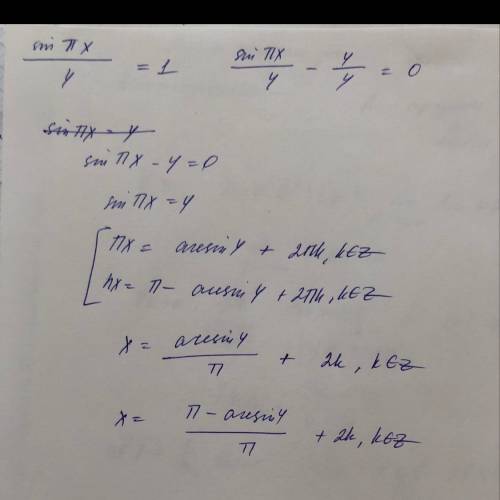 sin πx / y = 1    sin πx / y - y / y = 0
sin πx = y
sin πx - y = 0
sin πx = y
πx = arcsin y + 2πk, k∈Z
πx = π - arcsin y + 2πk, k∈Z
x = arcsin y / π + 2k, k∈Z
x = π - arcsin y / π + 2k, k∈Z